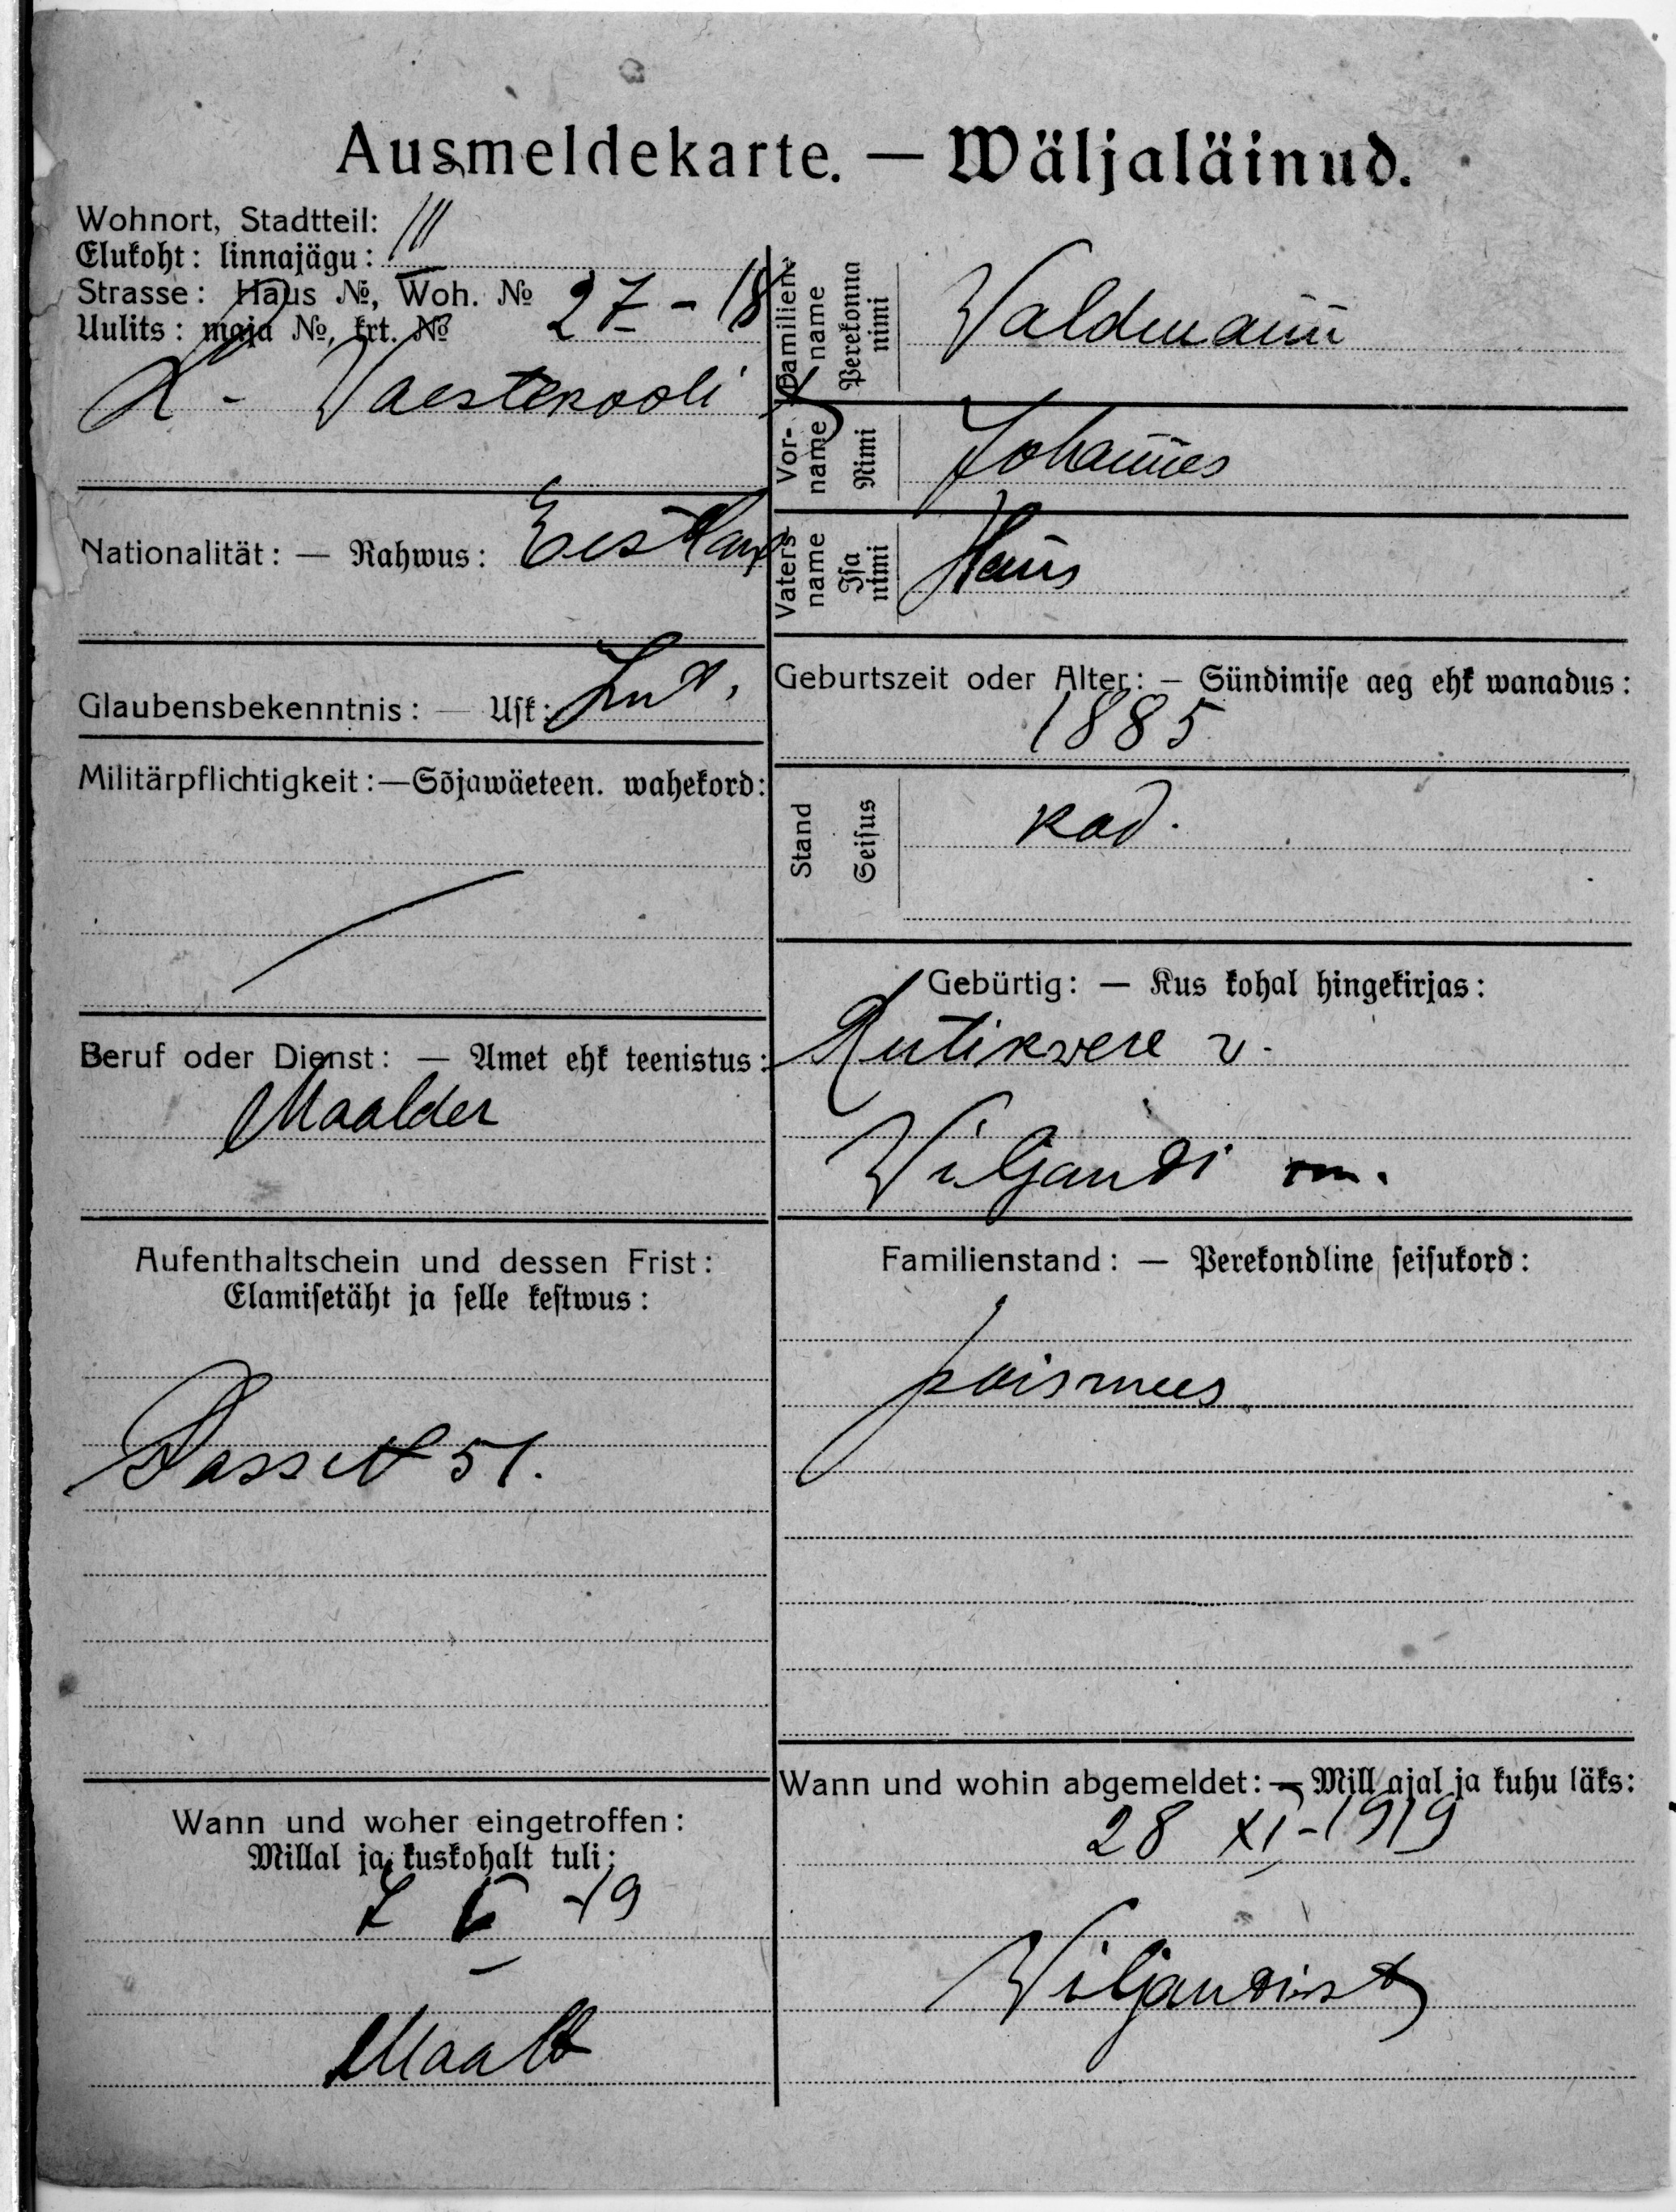 Ausmeldekarte. — Wäljaläinud.
Wohnort, Stadtteil:
Elukoht: linnajägu: III
Strasse: Haus №, Woh. №
Uulits: maja №, krt. № 27 - 18
- Vaestekooli
Nationalität: — Rahwus: Eestlane
Glaubensbekenntnis: — Usk: Lut.
Militärpflichtigkeit: — Sõjawäeteen. wahekord:
Beruf oder Dienst: — Amet ehk teenistus:
Maalder
Aufenthaltschein und dessen Frist:
Elamisetäht ja selle kestwus:
Pass № 51.
Wann und woher eingetroffen:
Millal ja kuskohalt tuli:
-19
Maalt
Familienname
Perekonna nimi
Waldmann
Vorname
Nimi
Johannes
Vatersname
Isa nimi
Hans
Geburtszeit oder Alter: — Sündimise aeg ehk wanadus:
1885
Stand
Seisus
kod.
Gebürtig: — Kus kohal hingekirjas:
Rutikvere v.
Wiljandi m.
Familienstand: — Perekondline seisukord:
poismees
Wann und wohin abgemeldet: — Mill ajal ja kuhu läks:
28 XI - 1919
Wiljandisse